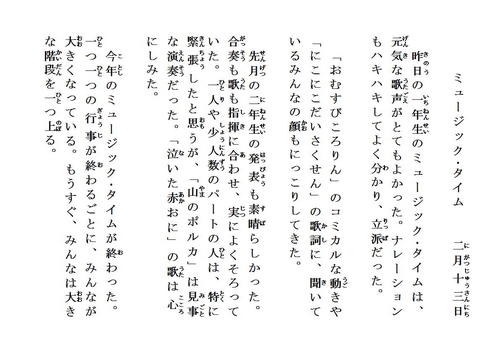 ミュージック・タイム　二月十三日
昨日の一年生のミュージック・タイムは、
元気な歌声がとてもよかった。ナレーション
もハキハキしてよく分かり、立派だった。
「おむすびころりん」のコミカルな動きや
「にこにこだいさくせん」の歌詞に、聞いて
いるみんなの顔もにっこりしてきた。
先月の二年生の発表も素晴らしかった。
合奏も歌も指揮に合わせ、実によくそろって
いた。一人や少人数のパートの人は、特に
緊張したと思うが、「山のポルカ」は見事
な演奏だった。「泣いた赤おに」の歌は心
にしみた。
今年のミュージック・タイムが終わった。
一つ一つの行事が終わるごとに、みんなが
大きくなっている。もうすぐ、みんなは大き
な階段を一つ上る。